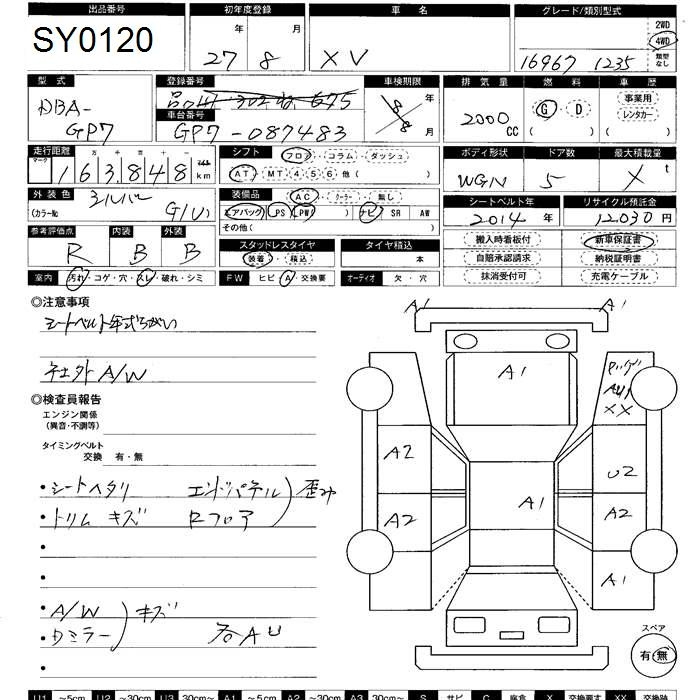 出品番号 初年度登録 車名 グレード/類別型式
SY0120 27年 8月 XV 16967 1235 2WD 4WD 類型なし
型式 登録番号 車検期限 排気量 燃料 車歴
DBA-GP7 年 月 2000CC G・D ( ) 事業用 レンタカー ( )
車台番号
GP7-087483
走行距離 シフト フロア・コラム・ダッシュ ボディ形状 ドア数 最大積載量
マーク 十 万 千 百 十 一 163848 km AT・MT 4 5 6 他( ) WGN 5 X t
外装色 シルバー 装備品 AC・クーラー・無し シートベルト年 リサイクル預託金
(カラーNo G1U) エアバッグ PS PW ナビ SR AW 2014年 12030円
その他( )
参考評価点 内装 外装 スタッドレスタイヤ タイヤ積込 搬入時看板付 新車保証書
R B B 装着・積込 本 自賠承認請求 納税証明書
室内 汚れ・コゲ・穴・スレ・破れ・シミ FW ヒビ・A・交換要 オーディオ 欠・穴 抹消受付可 充電ケーブル
◎注意事項
シートベルト年式ちがい
社外A/W
◎検査員報告
エンジン関係
(異音・不調等)
タイミングベルト
交換 有・無
・シートヘタリ エンドパネル
・トリム キズ Rフロア 歪み
・
・
・A/W
・Dミラー キズ 各AU
・
A1 A1
A1
XX
A2 U2
A1
A2 A2
A1
スペア
有・無
U1 ~5cm U2 ~30cm U3 30cm~ A1 ~5cm A2 ~30cm A3 30cm~ S サビ C 腐食 X 交換要す XX 交換跡